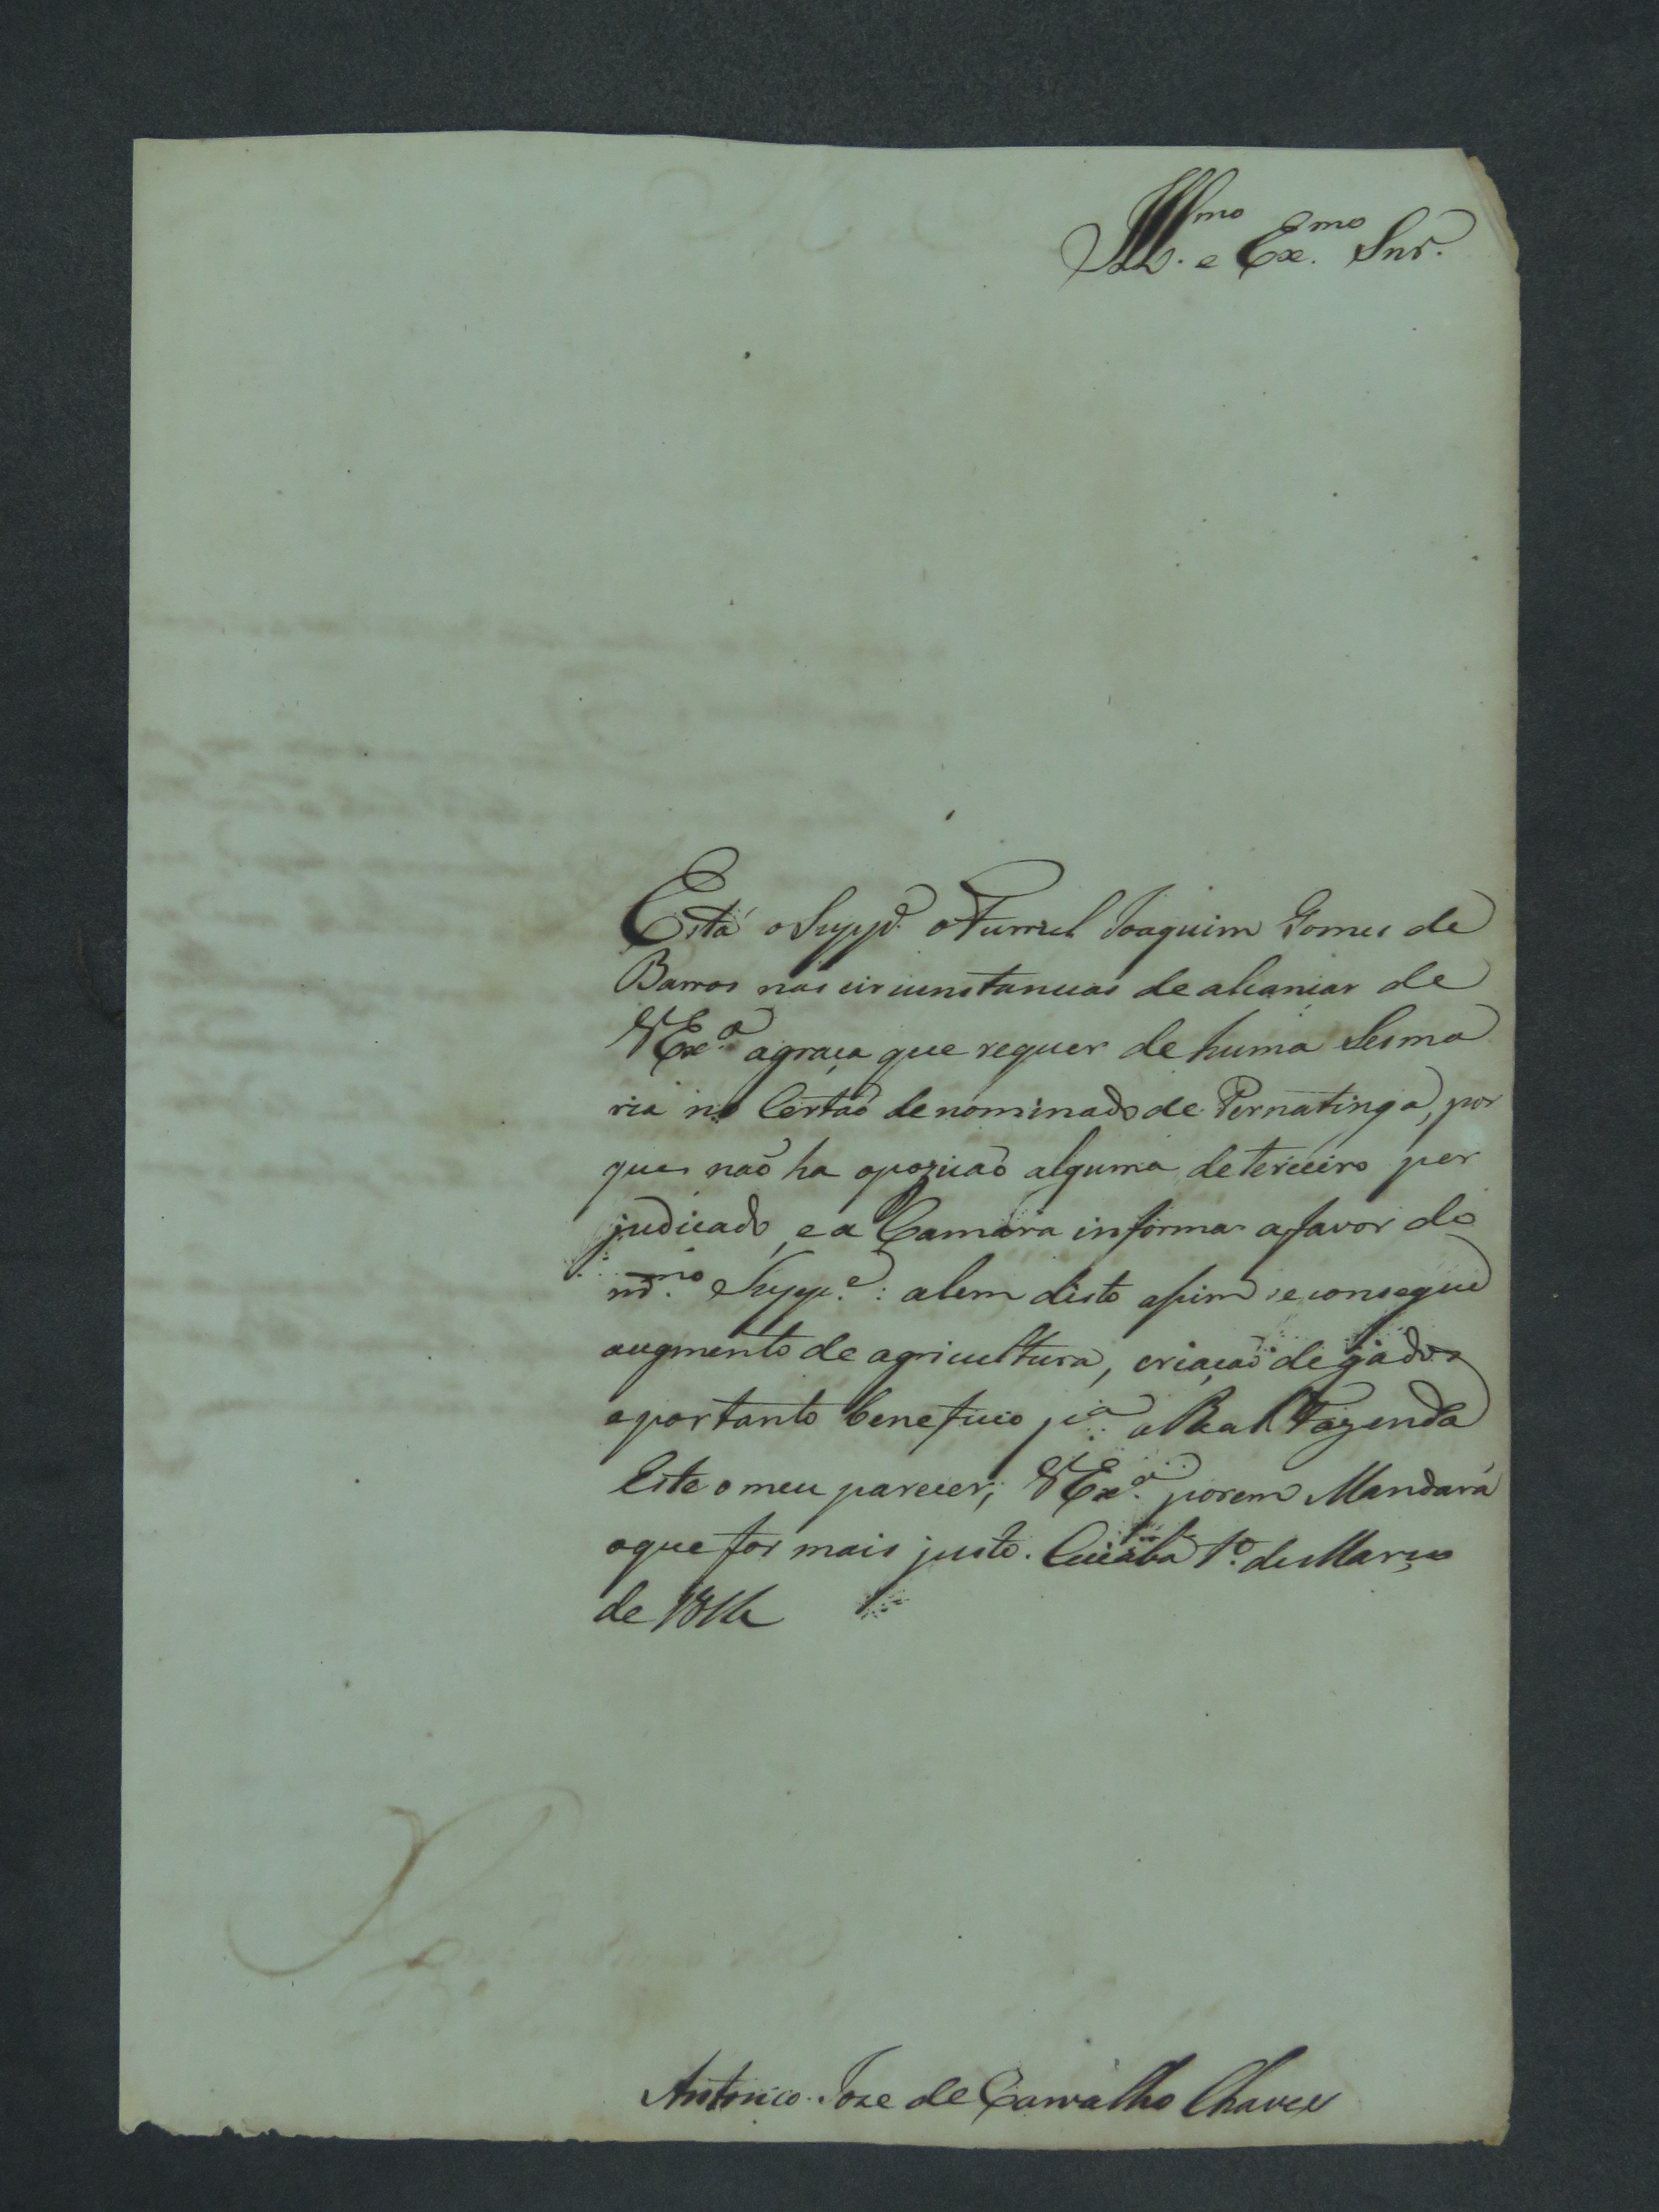 Ill.mo e Ex.mo Snr.
Está o Supp.e o Furriel Joaquim Gomes de
Barros nas circunstancias de alcançar de
VEx.a agraça que requer de huma Sesma
ria no Certaõ denominado de Pernatinga, por
que naõ ha opoziçaõ alguma de terceiro per
judicado, e a Camara informa afavor do
m.mo Supp.e: alem disto assim se consegue
augmento de agricultura, criaçaõ de gados
eportanto beneficio p.a a Real Fazenda
Este o meu parecer; VEx.a porem Mandará
oque for mais justo. Cuiabá 1.o de Março
de 1816
Antonio Joze de Carvalho Chaves